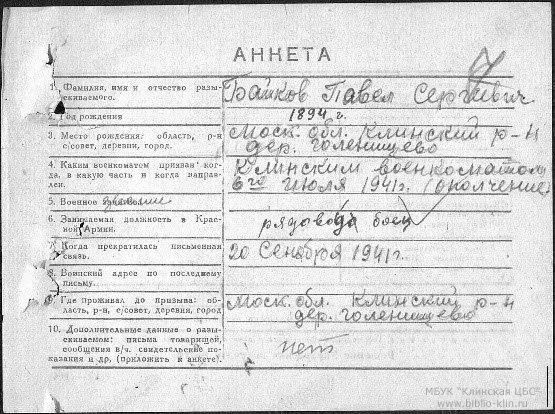 АНКЕТА
1. Фамилия, имя и отчество разы-
скиваемого.
Байков Павел Сергеевич
2. Год рождения
1894 г.
3. Место рождения: область, р-н
с/совет, деревни, город.
Моск. обл. Клинский р-н
дер. Голенищево
4. Каким военкоматом призван ког-
да, в какую часть и когда направ-
лен.
Клинским военкоматом
6го июля 1941 г. (ополчение)
5. Военное
звание
6. Занимаемая должность в Крас-
ной Армии.
рядовой боец
7. Когда прекратилась письменная
связь.
20 Сентября 1941 г.
8. Воинский адрес по последнему
письму.
9. Где проживал до призыва: об-
ласть, р-н, с/совет, деревня, город
Моск. обл. Клинский р-н
дер. Голенищево
10. Дополнительные данные о разы-
скиваемом: письма товарищей,
сообщения в/ч. свидетельские по-
казания и др. (приложить к анкете).
нет
МБУК "Клинская ЦБС"
www.biblio-klin.ru